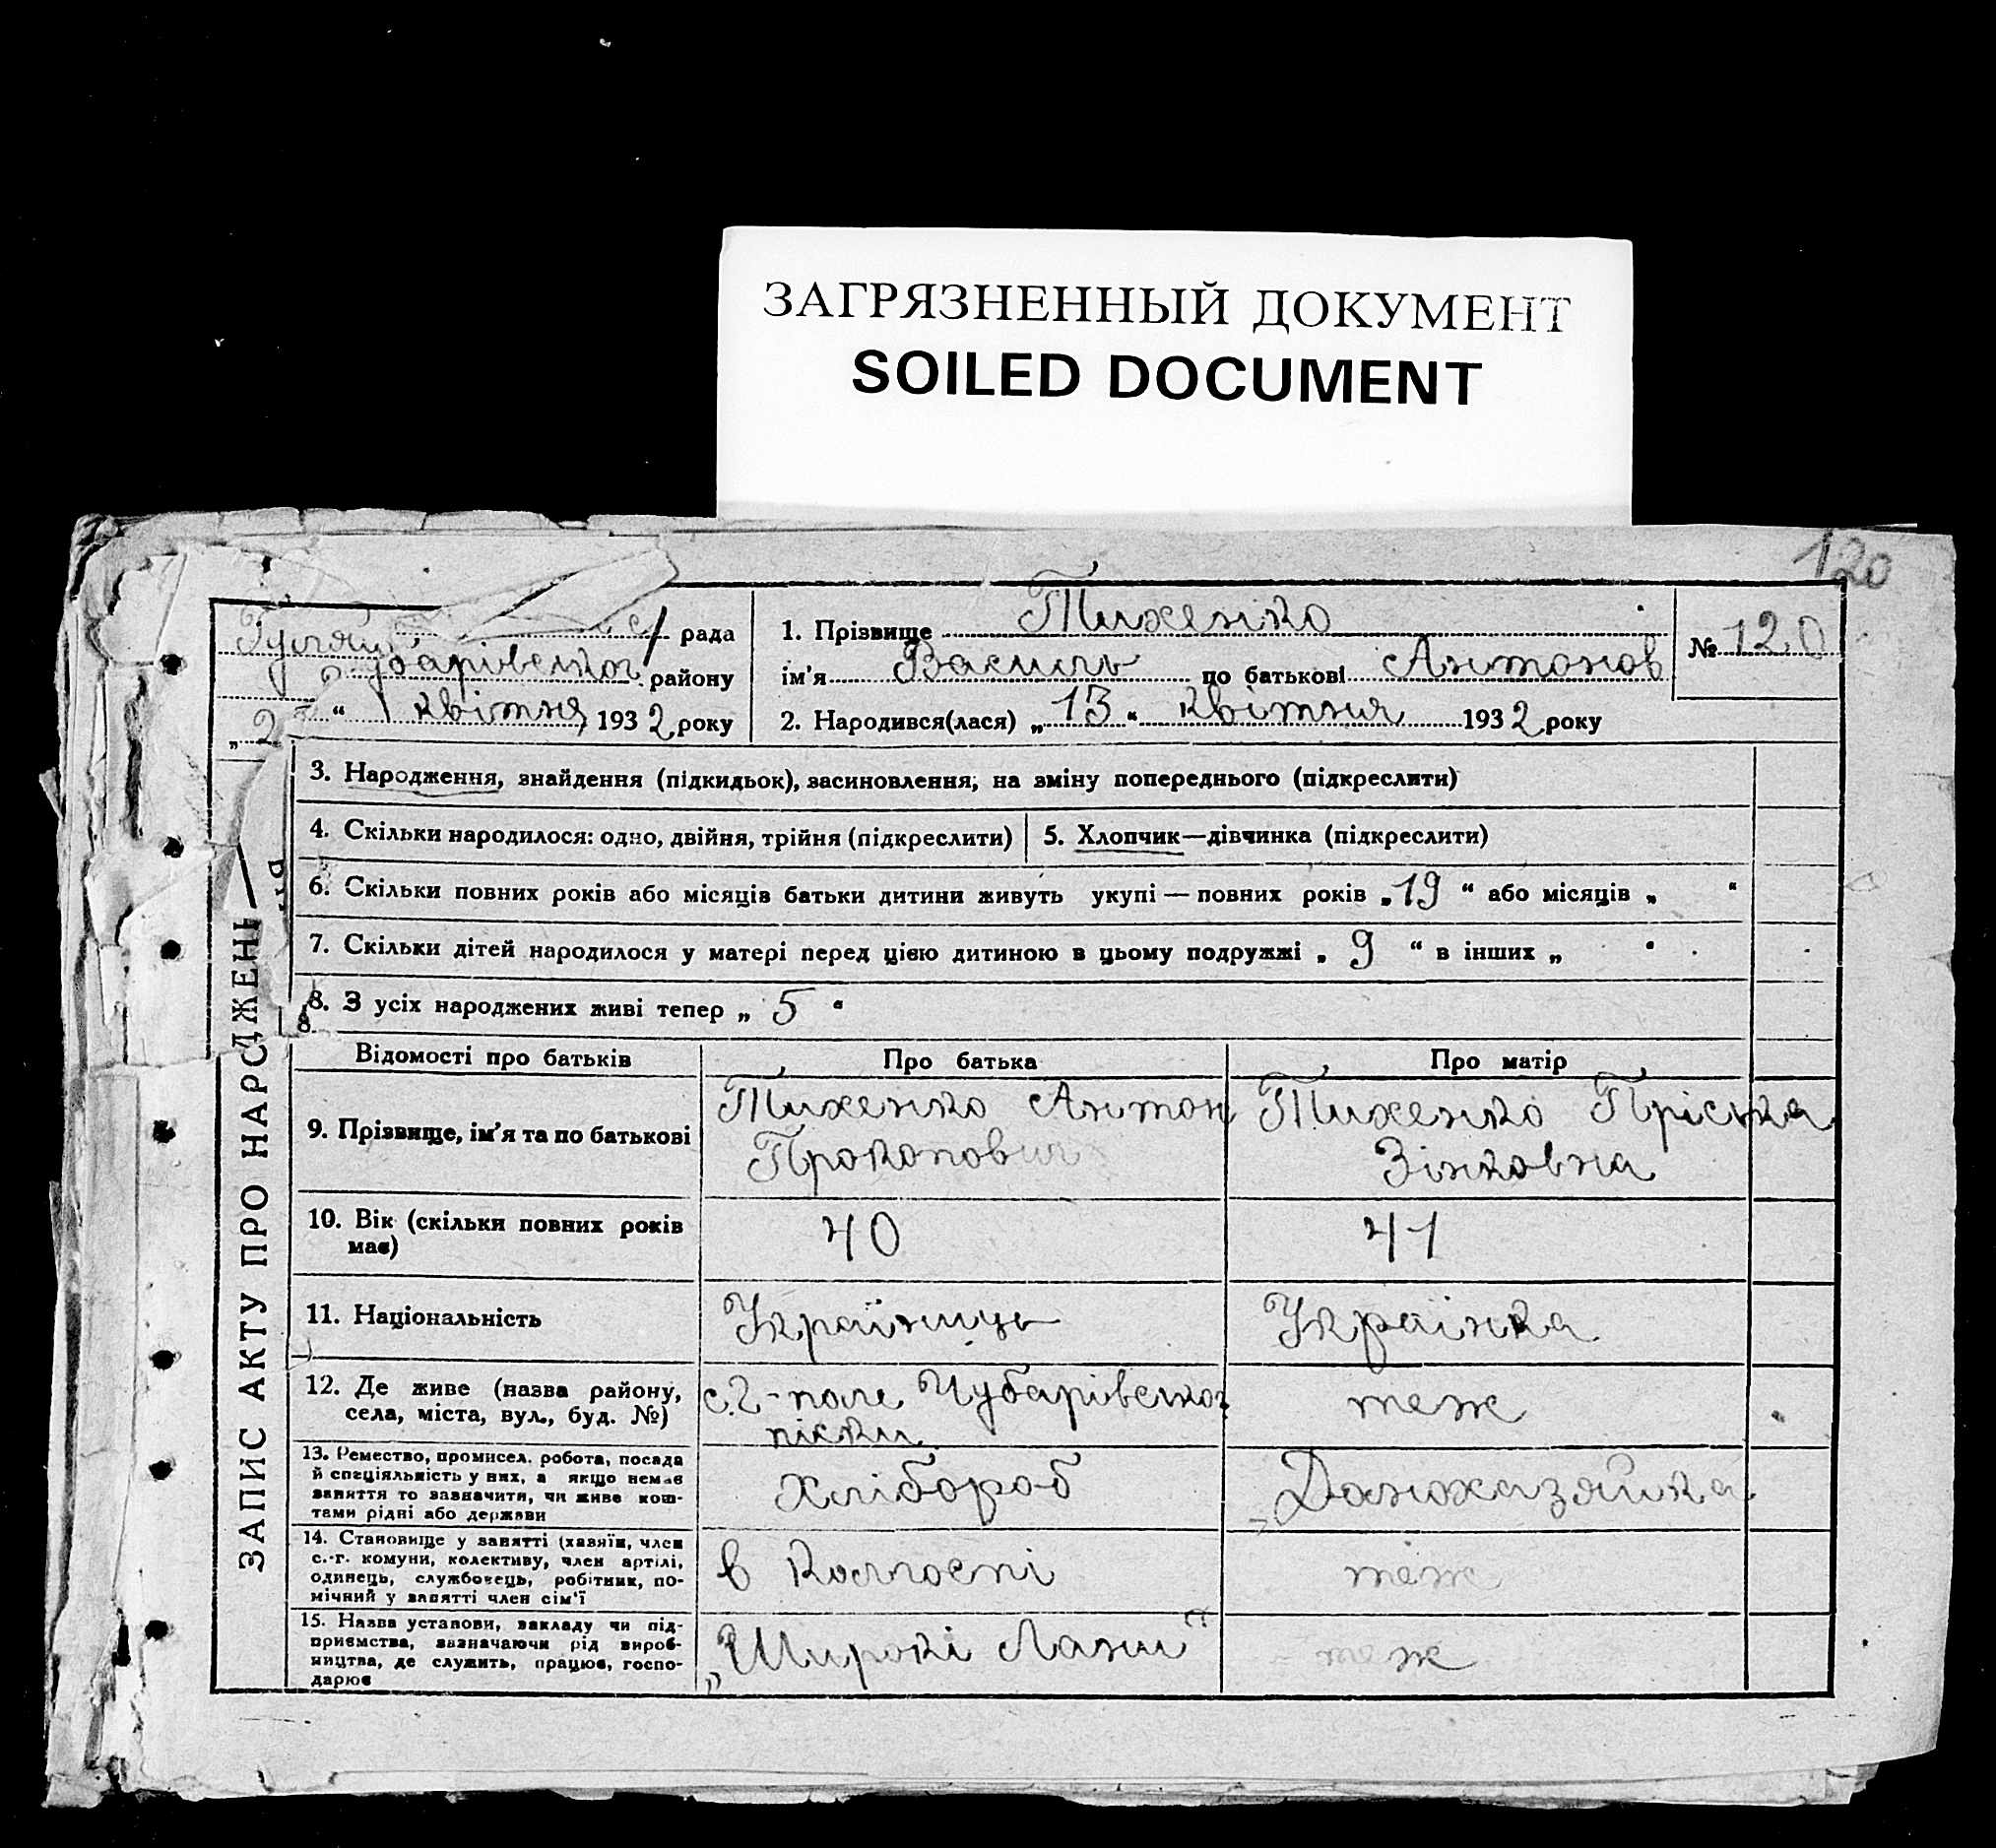 ЗАГРЯЗНЕННЫЙ ДОКУМЕНТ
SOILED DOCUMENT
120
с/ рада
районy
„2 “ квітня 1932 року
1. Прізвище Тихенко
ім'я Василь по батькові Антонов
№ 120
2. Народився(лася) „13“ квітня 1932 року
ЗАПИС АКТУ ПРО НАРОДЖЕНН
3. Народження, знайдення (підкидьок), засиновлення; на зміну попереднього (підкреслити)
4. Скільки народилося: одно, двійня, трійня (підкреслити) 5. Хлопчик—дівчинка (підкреслити)
6. Скільки повних років або місяців батьки дитини живуть укупі — повних років „19“ або місяців „ “
7. Скільки дітей народилося у матері перед цією дитиною в цьому подружжі „9“ в інших „ “
8. З усіх народжених живі тепер „5“
Відомості про батьків Про батька Про матір
9. Прізвище, ім'я та по батькові Тихенко Антон Тихенко Пріська
Прокопович Зінковна
10. Вік (скільки повних років 40 41
має)
11. Національність Україниць Українка
12. Де живе (назва району, с. Г-поле Чубарівської теж
села, міста, вул., буд. №)
13. Ремество, промисел. робота, посада
й спеціяльність у них, а якщо немає хлібороб Домохазяйка
заняття то зазначити, чи живе кош-
тами рідні або держави
14. Становище у занятті (хазяїн, член
с.-г. комуни, колективу, член артілі, в Колгоспі теж
одинець, службовець, робітник, по-
мічний у занятті член сім'ї
15. Назва установи, закладу чи під-
приємства, зазначаючи рід вироб- „Широкі Лани“ теж
ництва, де служить, працює, госпо-
дарює